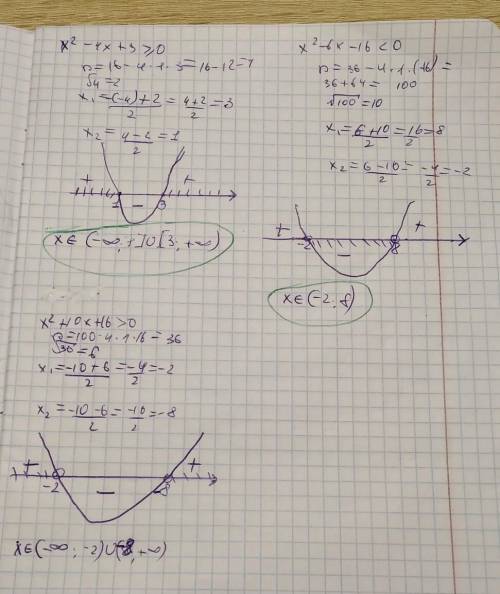 x² - 4x + 3 ≥ 0
D = 16 - 4 · 1 · 3 = 16 - 12 = 4
√4 = 2
x₁ = (-4) + 2 / 2 = 4+2 / 2 = 3
x₂ = 4-2 / 2 = 1
+ - +
1 3
x ∈ (-∞, 1] ∪ [3, +∞)
x² - 6x - 16 < 0
D = 36 - 4 · 1 · (16) =
36 + 64 = 100
√100 = 10
x₁ = 6+10 / 2 = 16 / 2 = 8
x₂ = 6-10 / 2 = -4 / 2 = -2
+ - +
-2 8
x ∈ (-2; 8)
x² + 10x + 16 > 0
D = 100 - 4 · 1 · 16 = 36
√36 = 6
x₁ = -10+6 / 2 = -4 / 2 = -2
x₂ = -10-6 / 2 = -10 / 2 = -8
+ - +
-2 -8
x ∈ (-∞; -2) ∪ (-8, +∞)